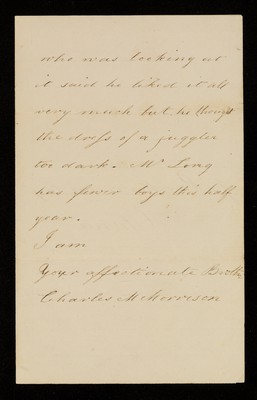 who was looking at
it said he liked it all
very much but he thought
the dress of a juggler
too dark. Mr Long
has fewer boys this half
year.
I am
Your affectionate Brother
Charles M Morrison